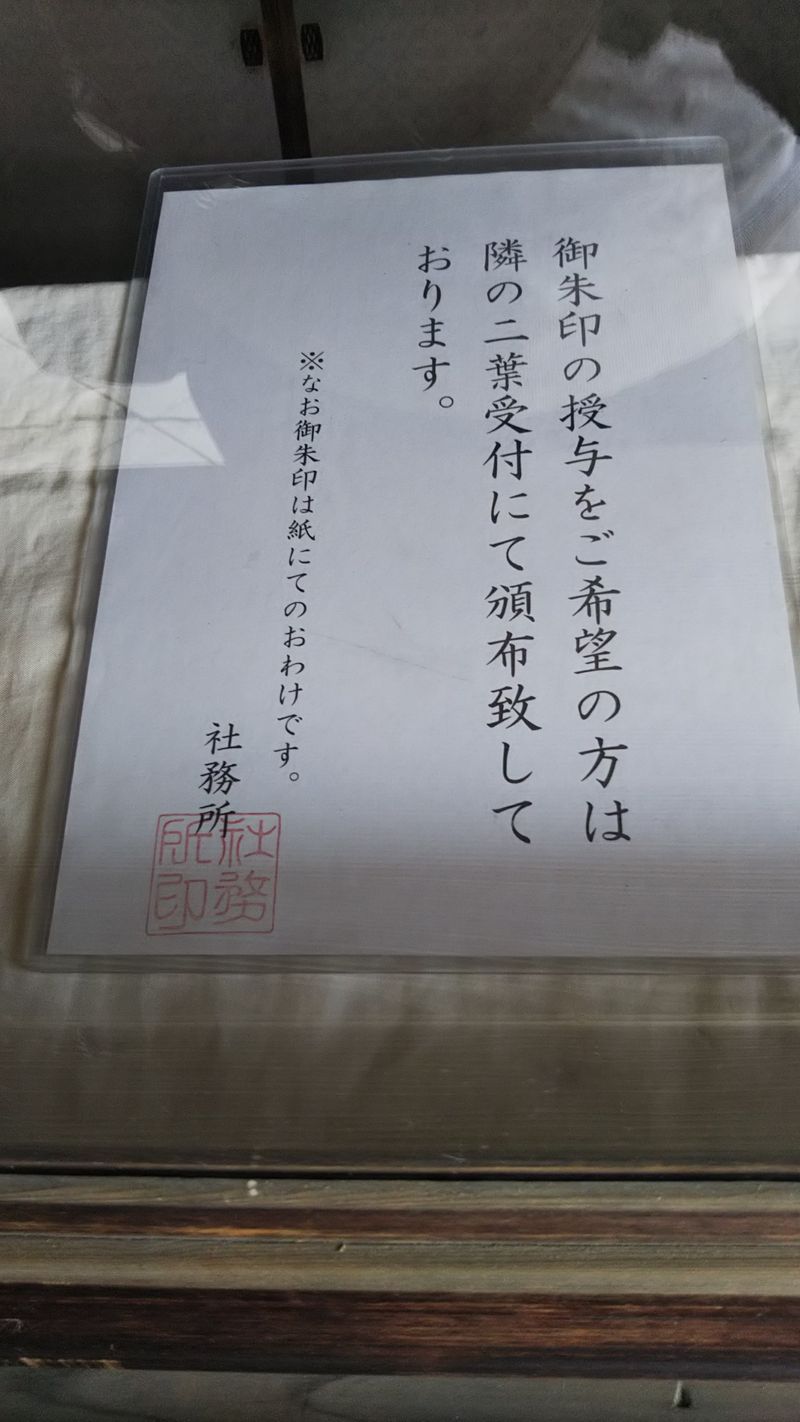 御朱印の授与をご希望の方は
隣の二葉受付にて頒布致して
おります。
※なお御朱印は紙にてのおわけです。
社務所
社務
所印